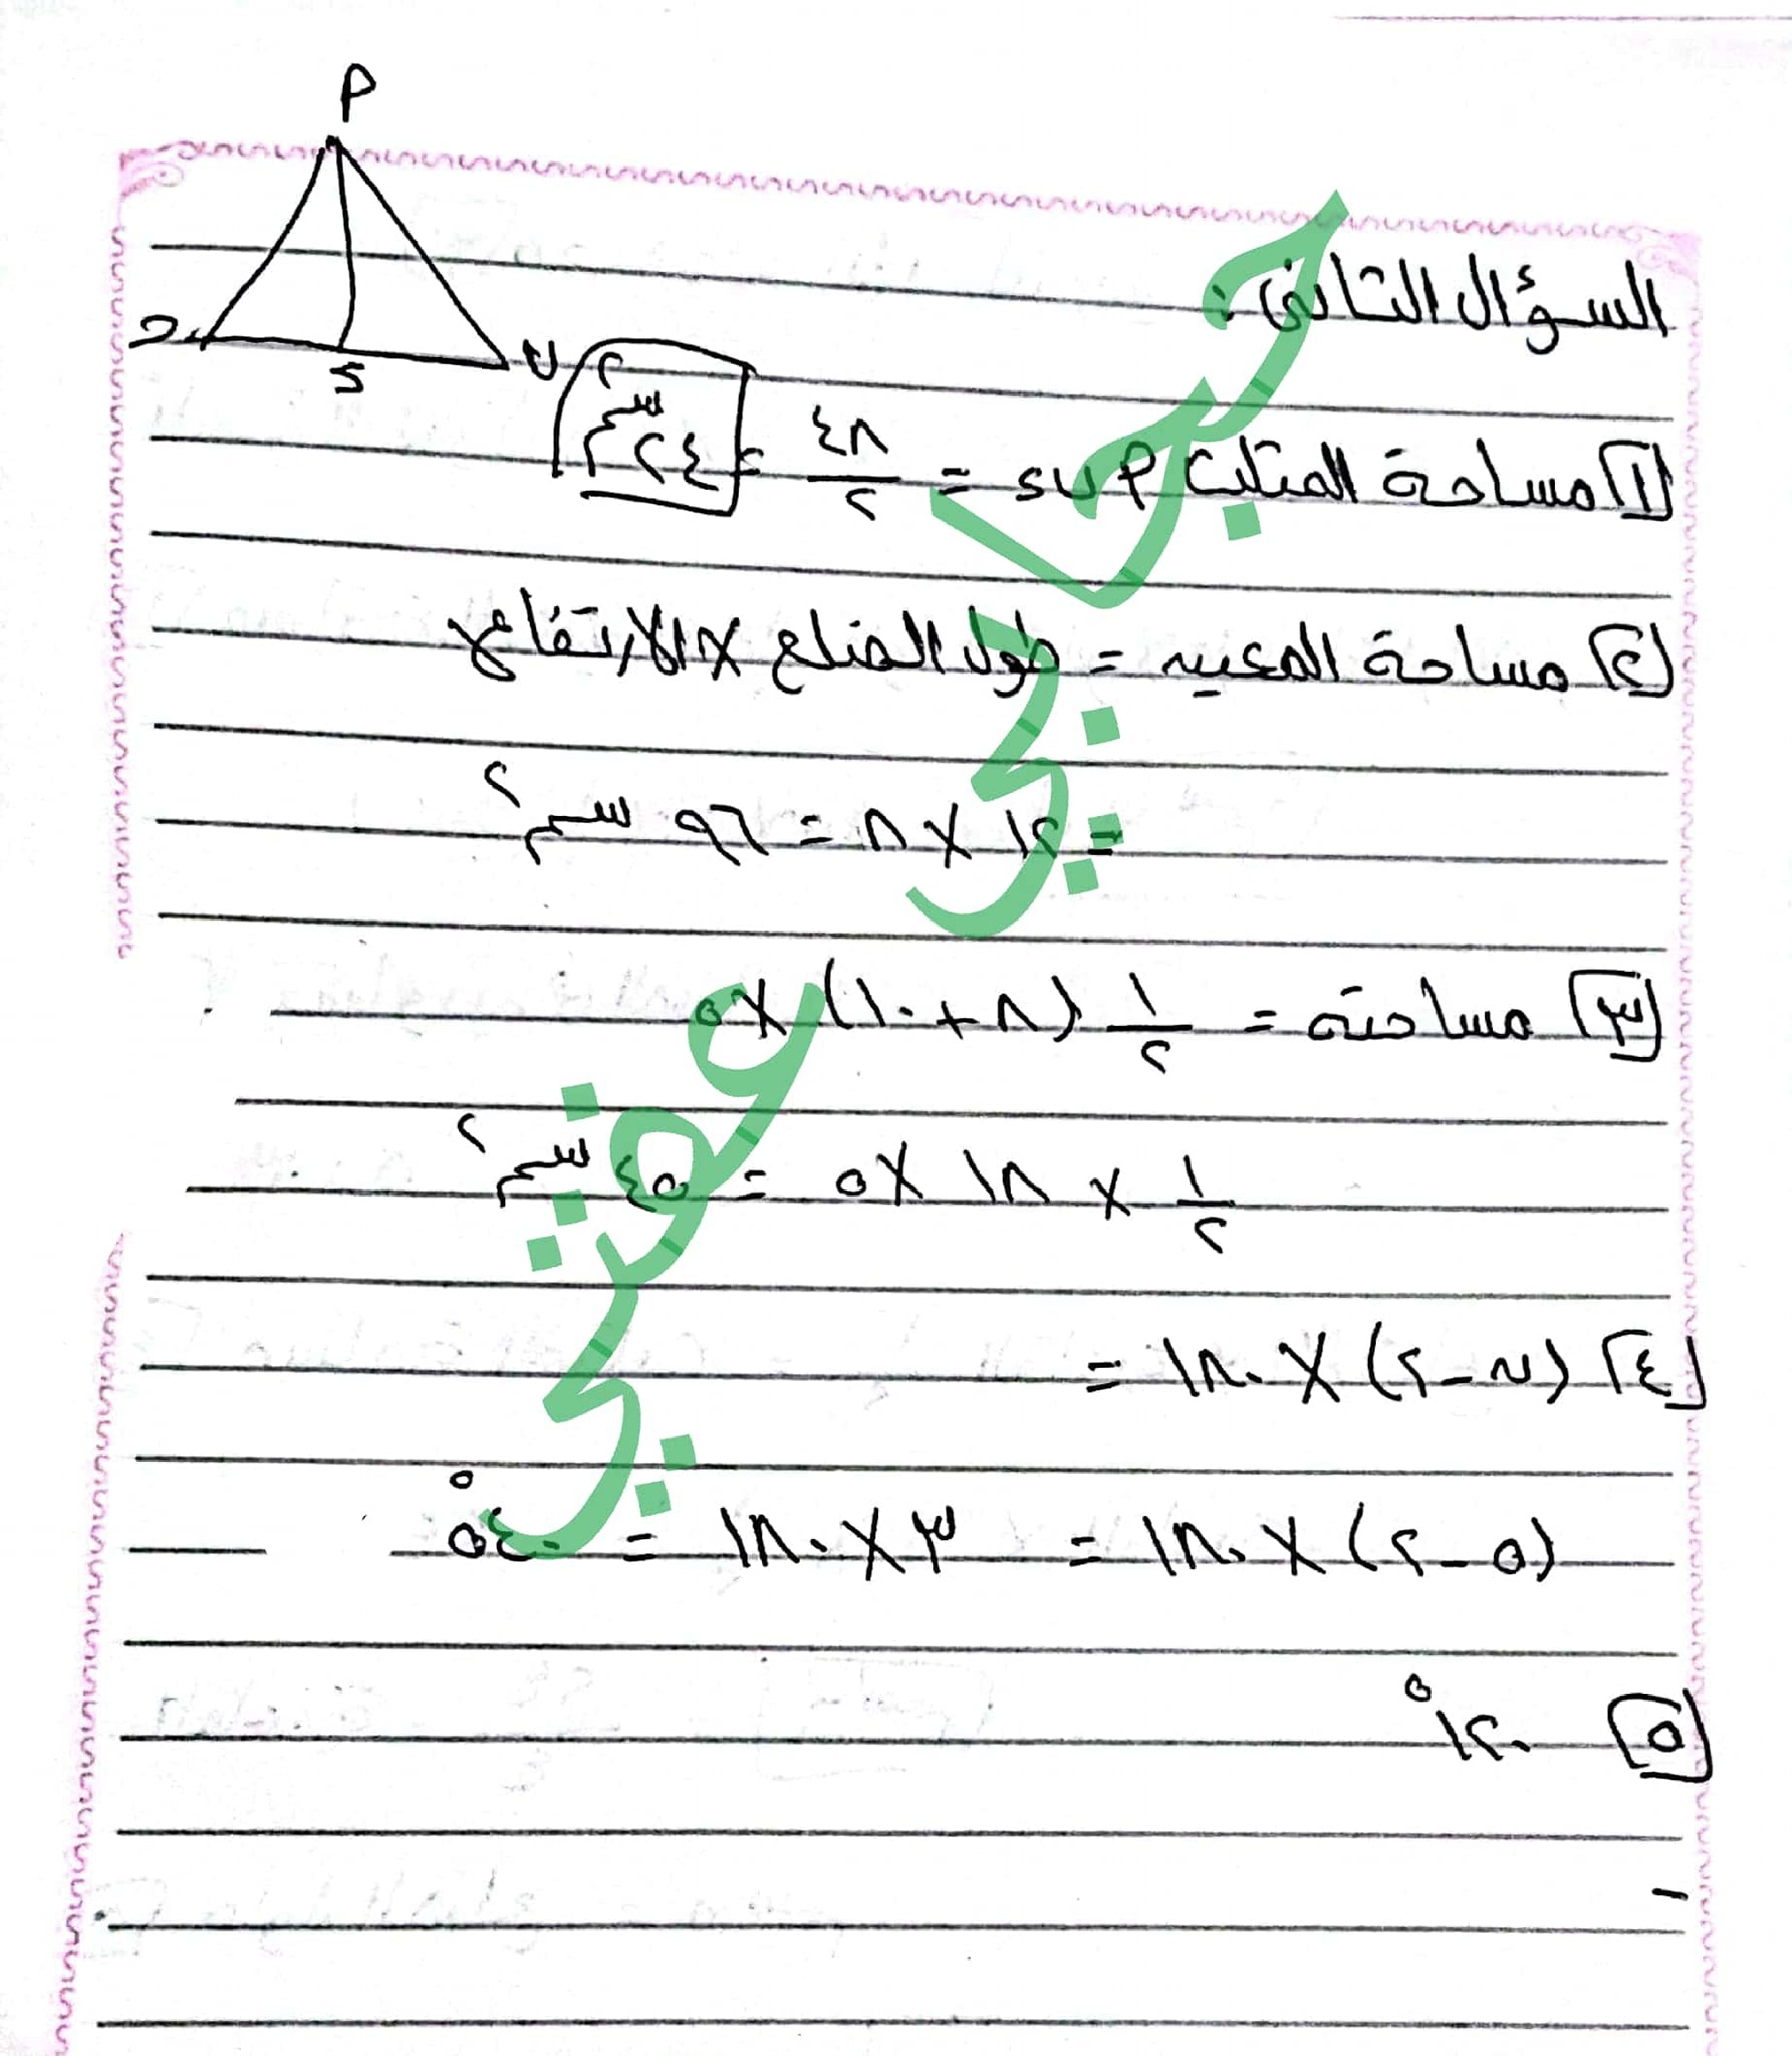 م
ح
ب
د
السؤال الثانى :
١ مساحة المثلث م ب د = ٤٨/٢ = ٢٤ سم٢
٢ مساحة المعين = طول الضلع × الارتفاع
= ١٢ × ٨ = ٩٦ سم٢
٣ مساحته = ١/٢ (٨ + ١٠) × ٥
١/٢ × ١٨ × ٥ = ٤٥ سم٢
٤ (ن - ٢) × ١٨٠ =
(٥ - ٢) × ١٨٠ = ٣ × ١٨٠ = ٥٤٠°
٥ ١٢٠°